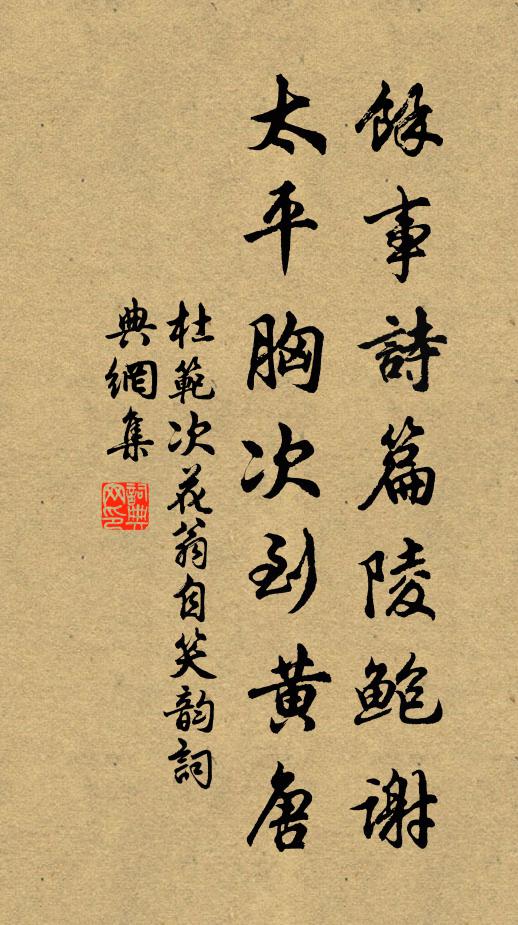 餘事詩篇陵鮑謝
太平胸次到黃唐
杜範次花翁自笑韵詞
典網集
詞典网印